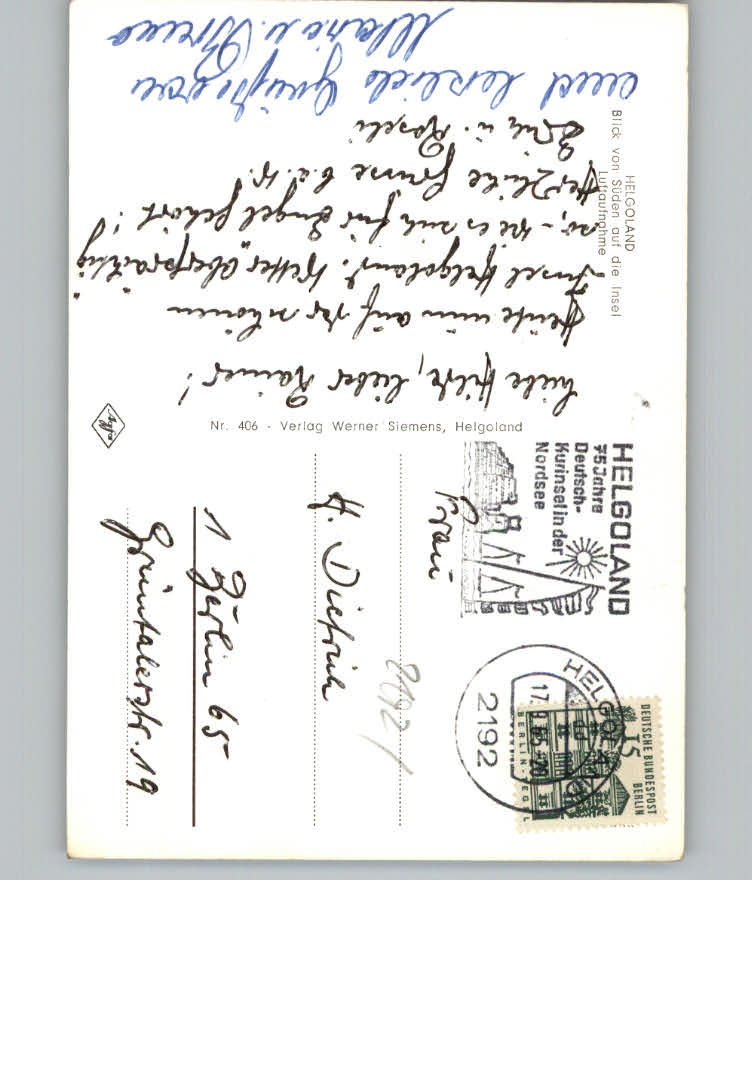 HELGOLAND
Blick von Süden auf die Insel
Luftaufnahme
Liebe Hilde, lieber Rainer!
Heute nun auf der schönen
Insel Helgoland. Wetter "oberprächtig"
so, - wie es sich für Engel gehört!
Herzliche Grüsse b. a. W.
u. Roseli
und herzliche Grüße von
Maria u. Bruno
Nr. 406 - Verlag Werner Siemens, Helgoland
Agfa
HELGOLAND
75 Jahre
Deutsch-
Kurinsel in der
Nordsee
HELGOLAND
17.9.65-20
2192
DEUTSCHE BUNDESPOST
BERLIN
15
BERLIN-TEGEL
Frau
H. Dietrich
1 Berlin 65
Grüntalerstr. 19
2192/